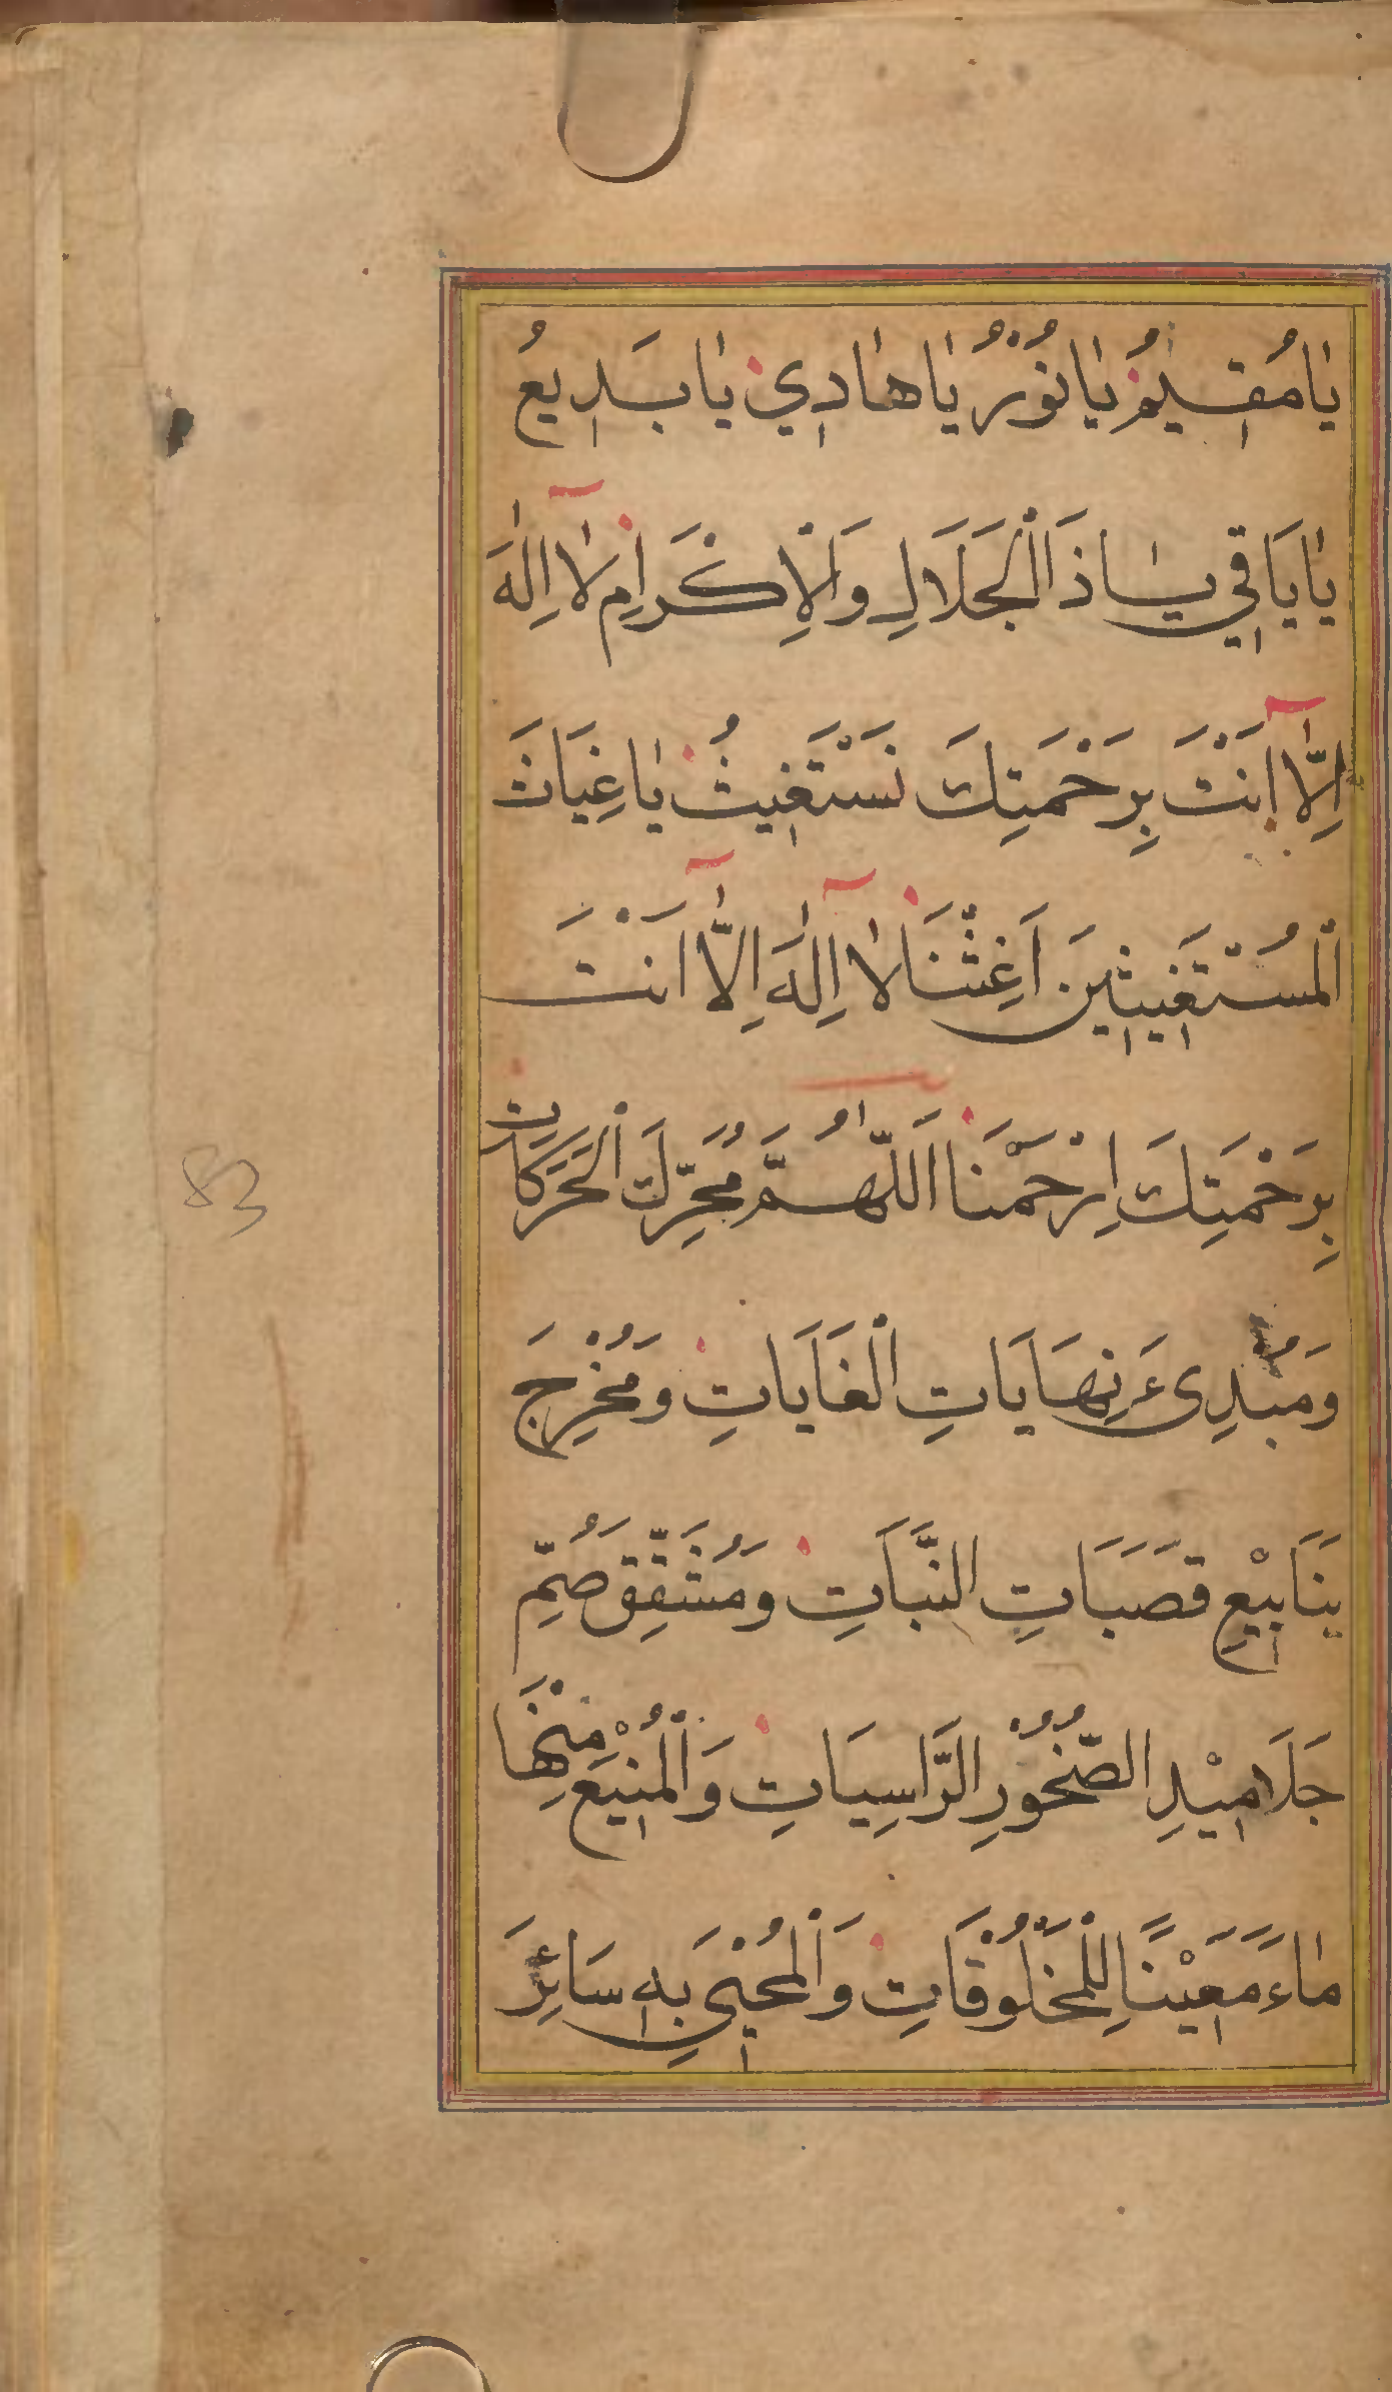 يَا مُقِيمُ يَا نُوْرُ يَا هَادِي يَا بَدِيعُ
يَا بَاقِي يَا ذَا الْجَلَالِ وَالْإِكْرَامِ لَآ اِلٰهَ
اِلَّآ اَنْتَ بِرَحْمَتِكَ نَسْتَغِيثُ يَا غِيَاثَ
الْمُسْتَغِيثِينَ اَغِثْنَا لَآ اِلٰهَ اِلَّآ اَنْتَ
بِرَحْمَتِكَ اِرْحَمْنَا اَللّٰهُمَّ مُحَرِّكَ الْحَرَكَاتِ
وَمُبْدِئَ نِهَايَاتِ الْغَايَاتِ وَمُخْرِجَ
يَنَابِيْعِ قَصَبَاتِ النَّبَاتِ وَمُشَقِّقَ صُمِّ
جَلَامِيْدِ الصُّخُوْرِ الرَّاسِيَاتِ وَالْمُنْبِعَ مِنْهَا
مَاءً مَعِيْنًا لِلْمَخْلُوْقَاتِ وَالْمُحْيِيَ بِهِ سَائِرَ
83